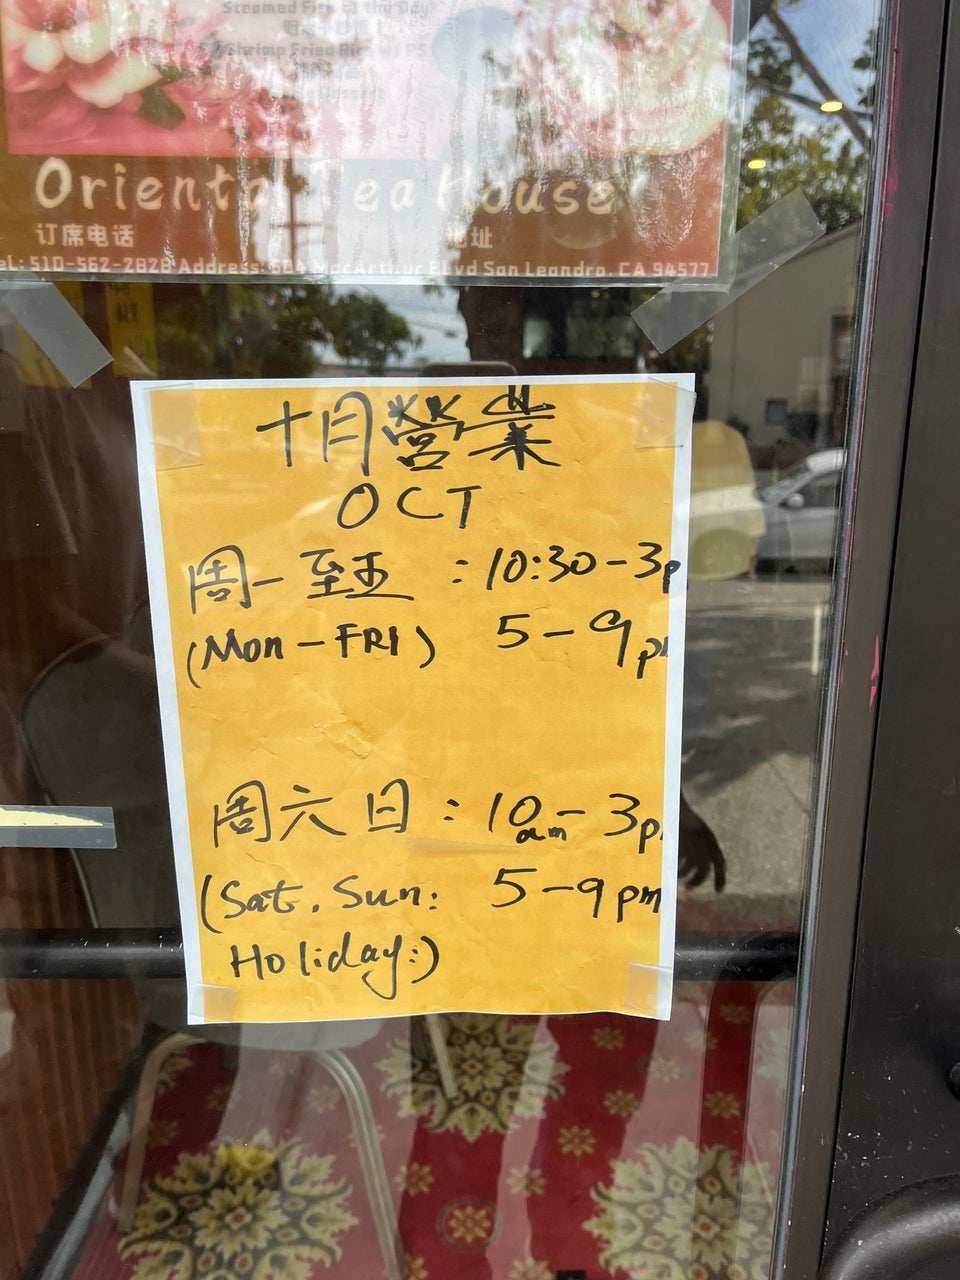 Steamed Fish of the Day
Shrimp Fried Rice w/ PS
Dessert
Oriental Tea House
订席电话 地址
el: 510-562-2828 Address: MacArthur Blvd San Leandro, CA 94577
十月營業
OCT
周一至五 : 10:30-3p
(Mon-FRI) 5-9pm
周六日 : 10am-3p
(Sat. Sun: 5-9pm
Holiday:)